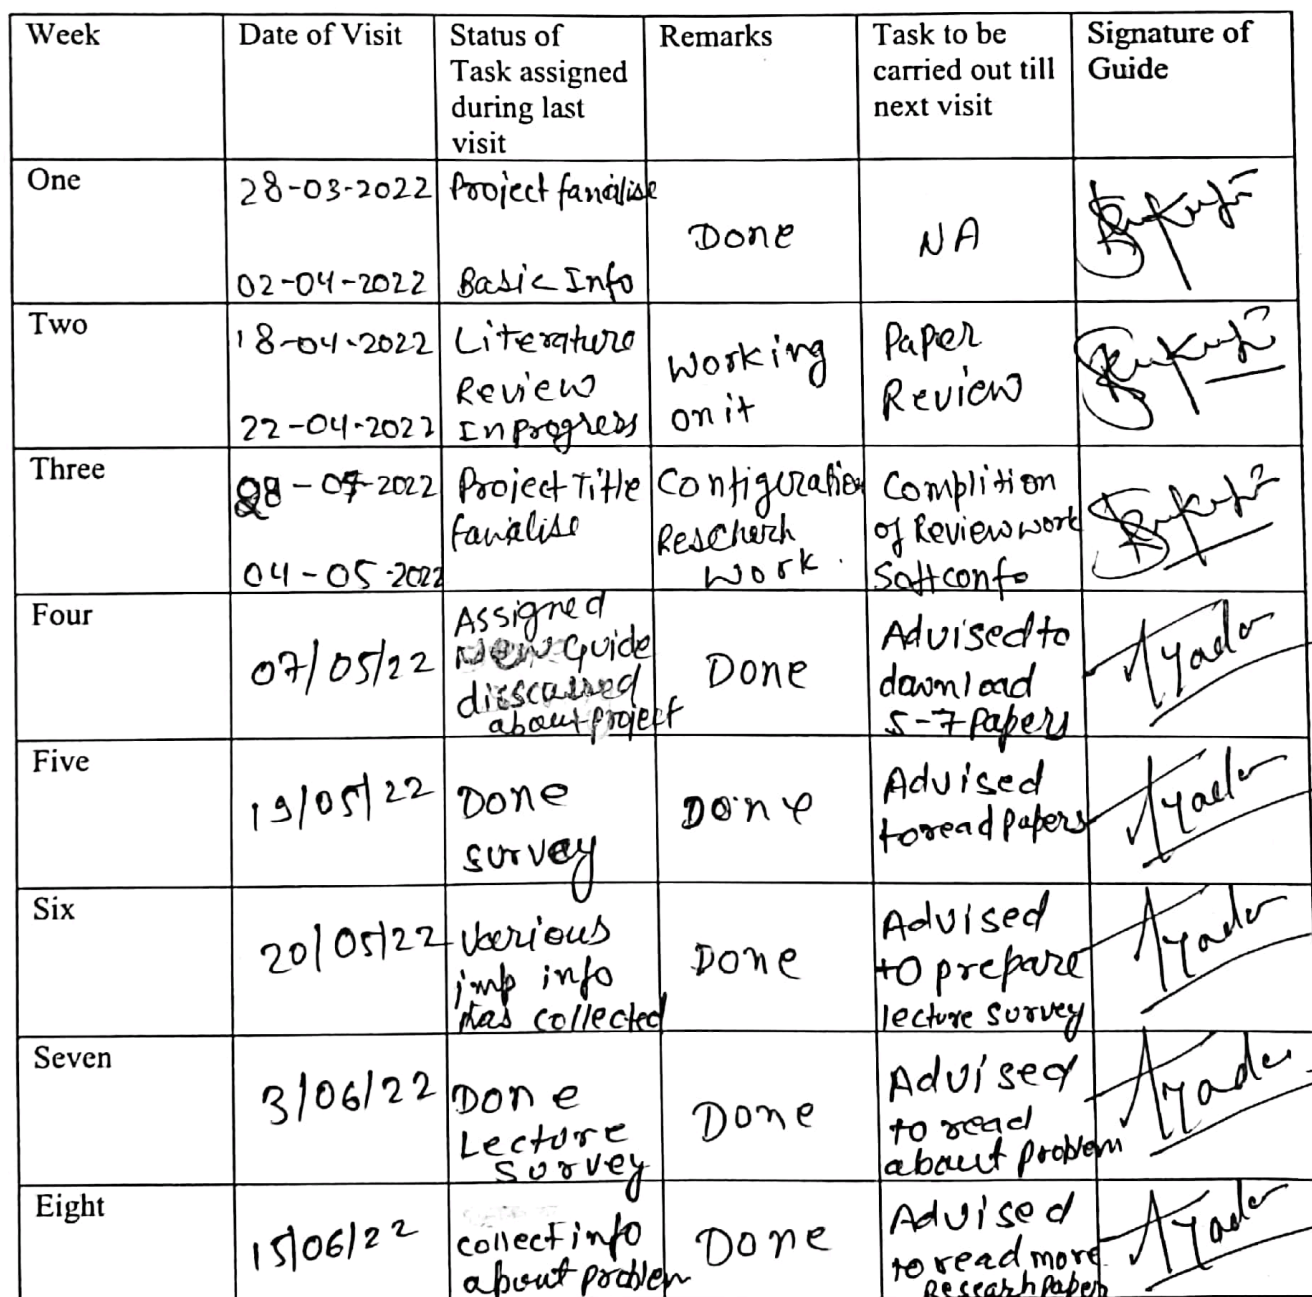 Week Date of Visit Status of Task assigned during last visit Remarks Task to be carried out till next visit Signature of Guide
One
28-03-2022
02-04-2022
Project fanalise
Basic Info
Done
NA
Two
18-04-2022
22-04-2022
Literature
Review
Inprogress
Working
on it
Paper
Review
Three
-2022
04-05-2022
Project Title
fanalise
Configuration
Rescherh
Work.
Complition
of Review work
Four
07/05/22
Assigned
New Guide
disscussed
about project
Done
Advised to
download
5-7 Papers
Five
19/05/22
Done
survey
Done
Advised
to read papers
Six
20/05/22
Various
imp info
has collected
Done
Advised
to prepare
lecture survey
Seven
3/06/22
Done
Lecture
Survey
Done
Advised
to read
about problem
Eight
15/06/22
collect info
about problem
Done
Advised
to read more
Researh Paper